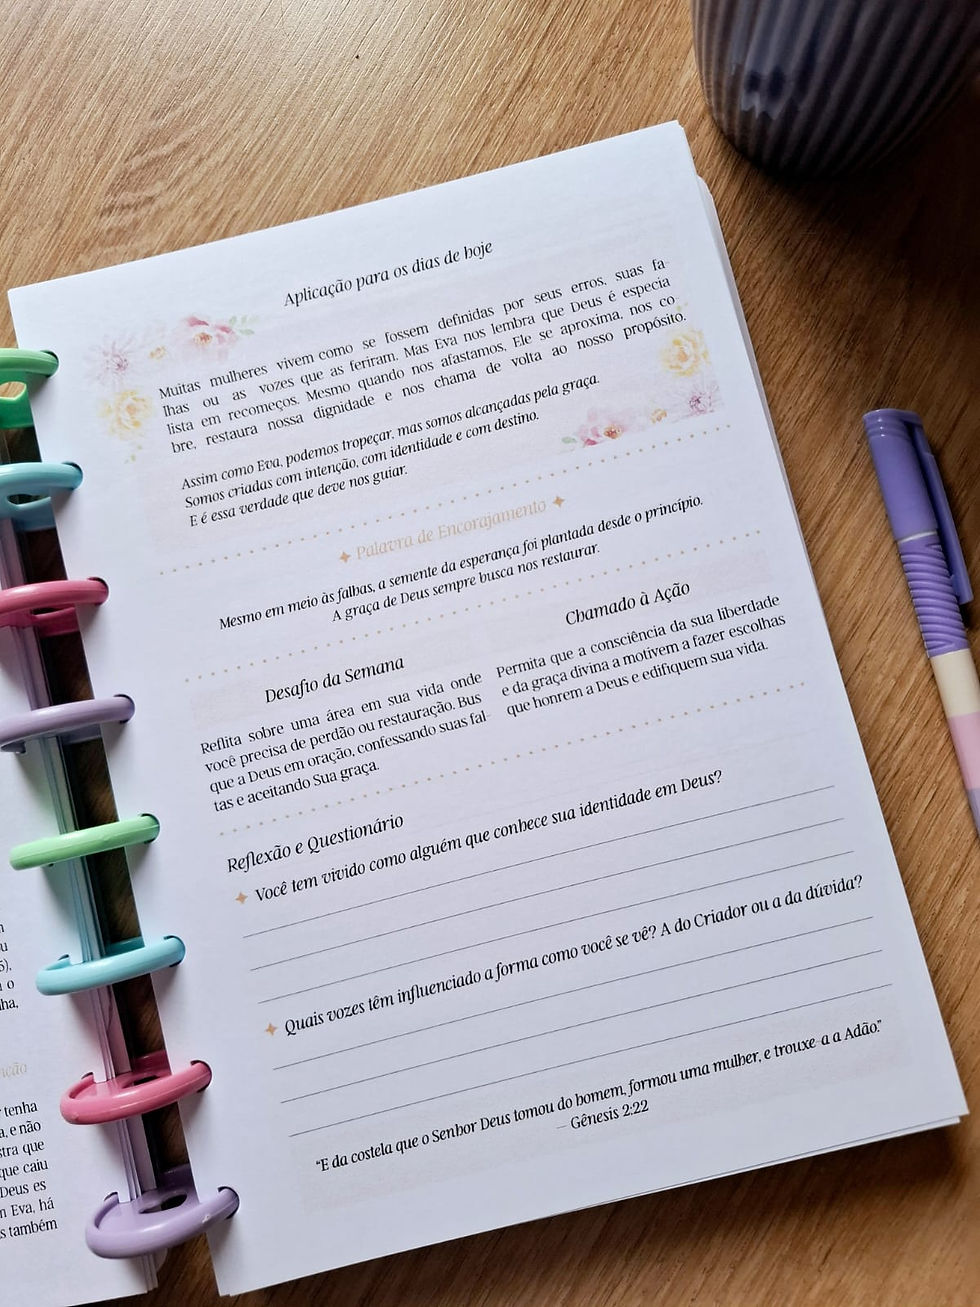 Aplicação para os dias de hoje
Muitas mulheres vivem como se fossem definidas por seus erros, suas fa-
lhas ou as vozes que as feriram. Mas Eva nos lembra que Deus é especia
lista em recomeços. Mesmo quando nos afastamos, Ele se aproxima, nos co
bre, restaura nossa dignidade e nos chama de volta ao nosso propósito.
Assim como Eva, podemos tropeçar, mas somos alcançadas pela graça.
Somos criadas com intenção, com identidade e com destino.
E é essa verdade que deve nos guiar.
Palavra de Encorajamento
Mesmo em meio às falhas, a semente da esperança foi plantada desde o princípio.
A graça de Deus sempre busca nos restaurar.
Desafio da Semana
Reflita sobre uma área em sua vida onde
você precisa de perdão ou restauração. Bus
que a Deus em oração, confessando suas fal-
tas e aceitando Sua graça.
Chamado à Ação
Permita que a consciência da sua liberdade
e da graça divina a motivem a fazer escolhas
que honrem a Deus e edifiquem sua vida.
Reflexão e Questionário
Você tem vivido como alguém que conhece sua identidade em Deus?
Quais vozes têm influenciado a forma como você se vê? A do Criador ou a da dúvida?
“E da costela que o Senhor Deus tomou do homem, formou uma mulher, e trouxe-a a Adão.”
– Gênesis 2:22
tenha
a, e não
stra que
que caiu
Deus es
n Eva, há
s também